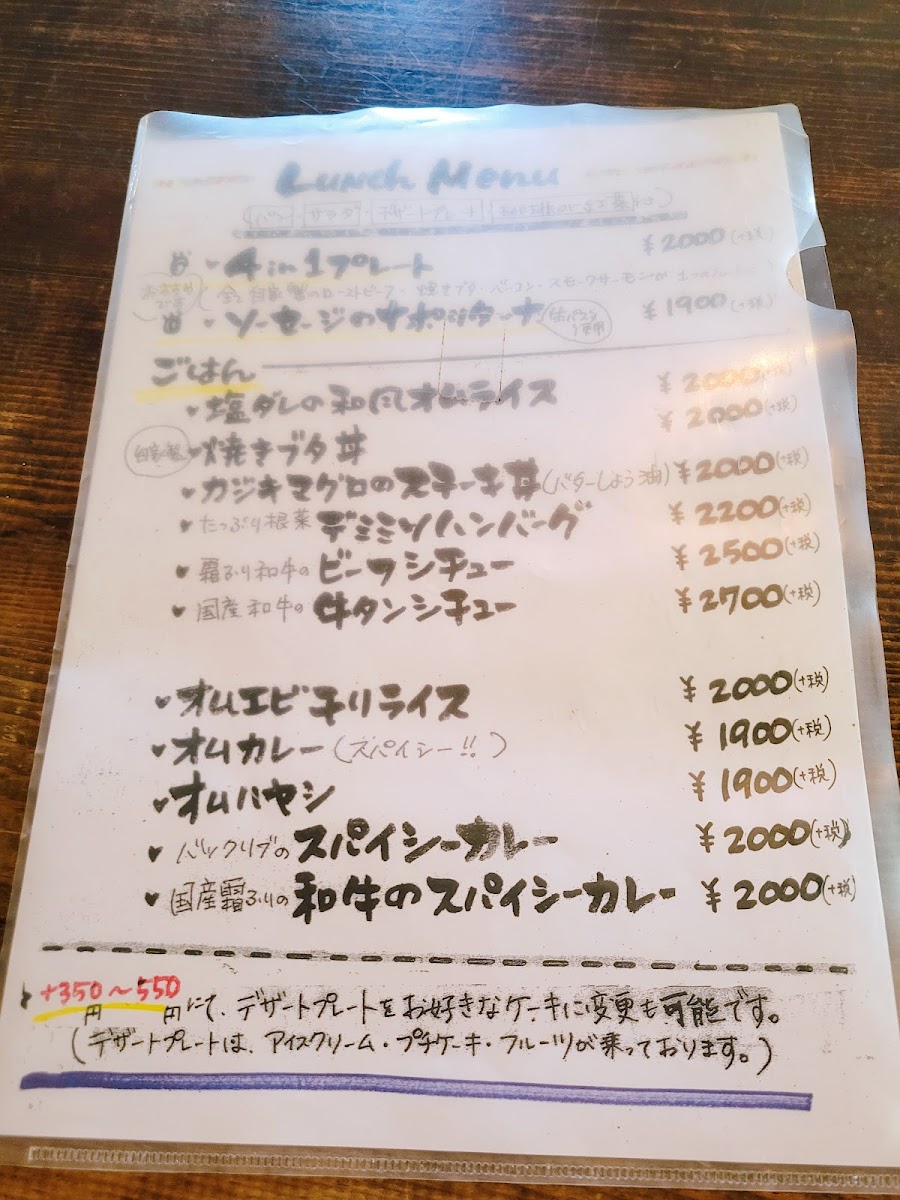 Lunch Menu
サラダ・デザートプレート
・4 in 1プレート ¥2000(+税)
自家製のローストビーフ・焼きブタ・ベーコン・スモークサーモンが
・ソーセージのナポリタン 生パスタ使用 ¥1900(+税)
ごはん
塩ダレの和風オムライス ¥2000
自家製 焼きブタ丼 ¥2000(+税)
カジキマグロのステーキ丼(バターしょう油) ¥2000(+税)
たっぷり根菜 デミミソハンバーグ ¥2200(+税)
霜ふり和牛の ビーフシチュー ¥2500(+税)
国産和牛の 牛タンシチュー ¥2700(+税)
オムエビチリライス ¥2000(+税)
オムカレー(スパイシー!!) ¥1900(+税)
オムハヤシ ¥1900(+税)
バックリブの スパイシーカレー ¥2000(+税)
国産霜ふりの 和牛のスパイシーカレー ¥2000(+税)
+350円〜550円にて、デザートプレートをお好きなケーキに変更も可能です。
(デザートプレートは、アイスクリーム・プチケーキ・フルーツが乗っております。)